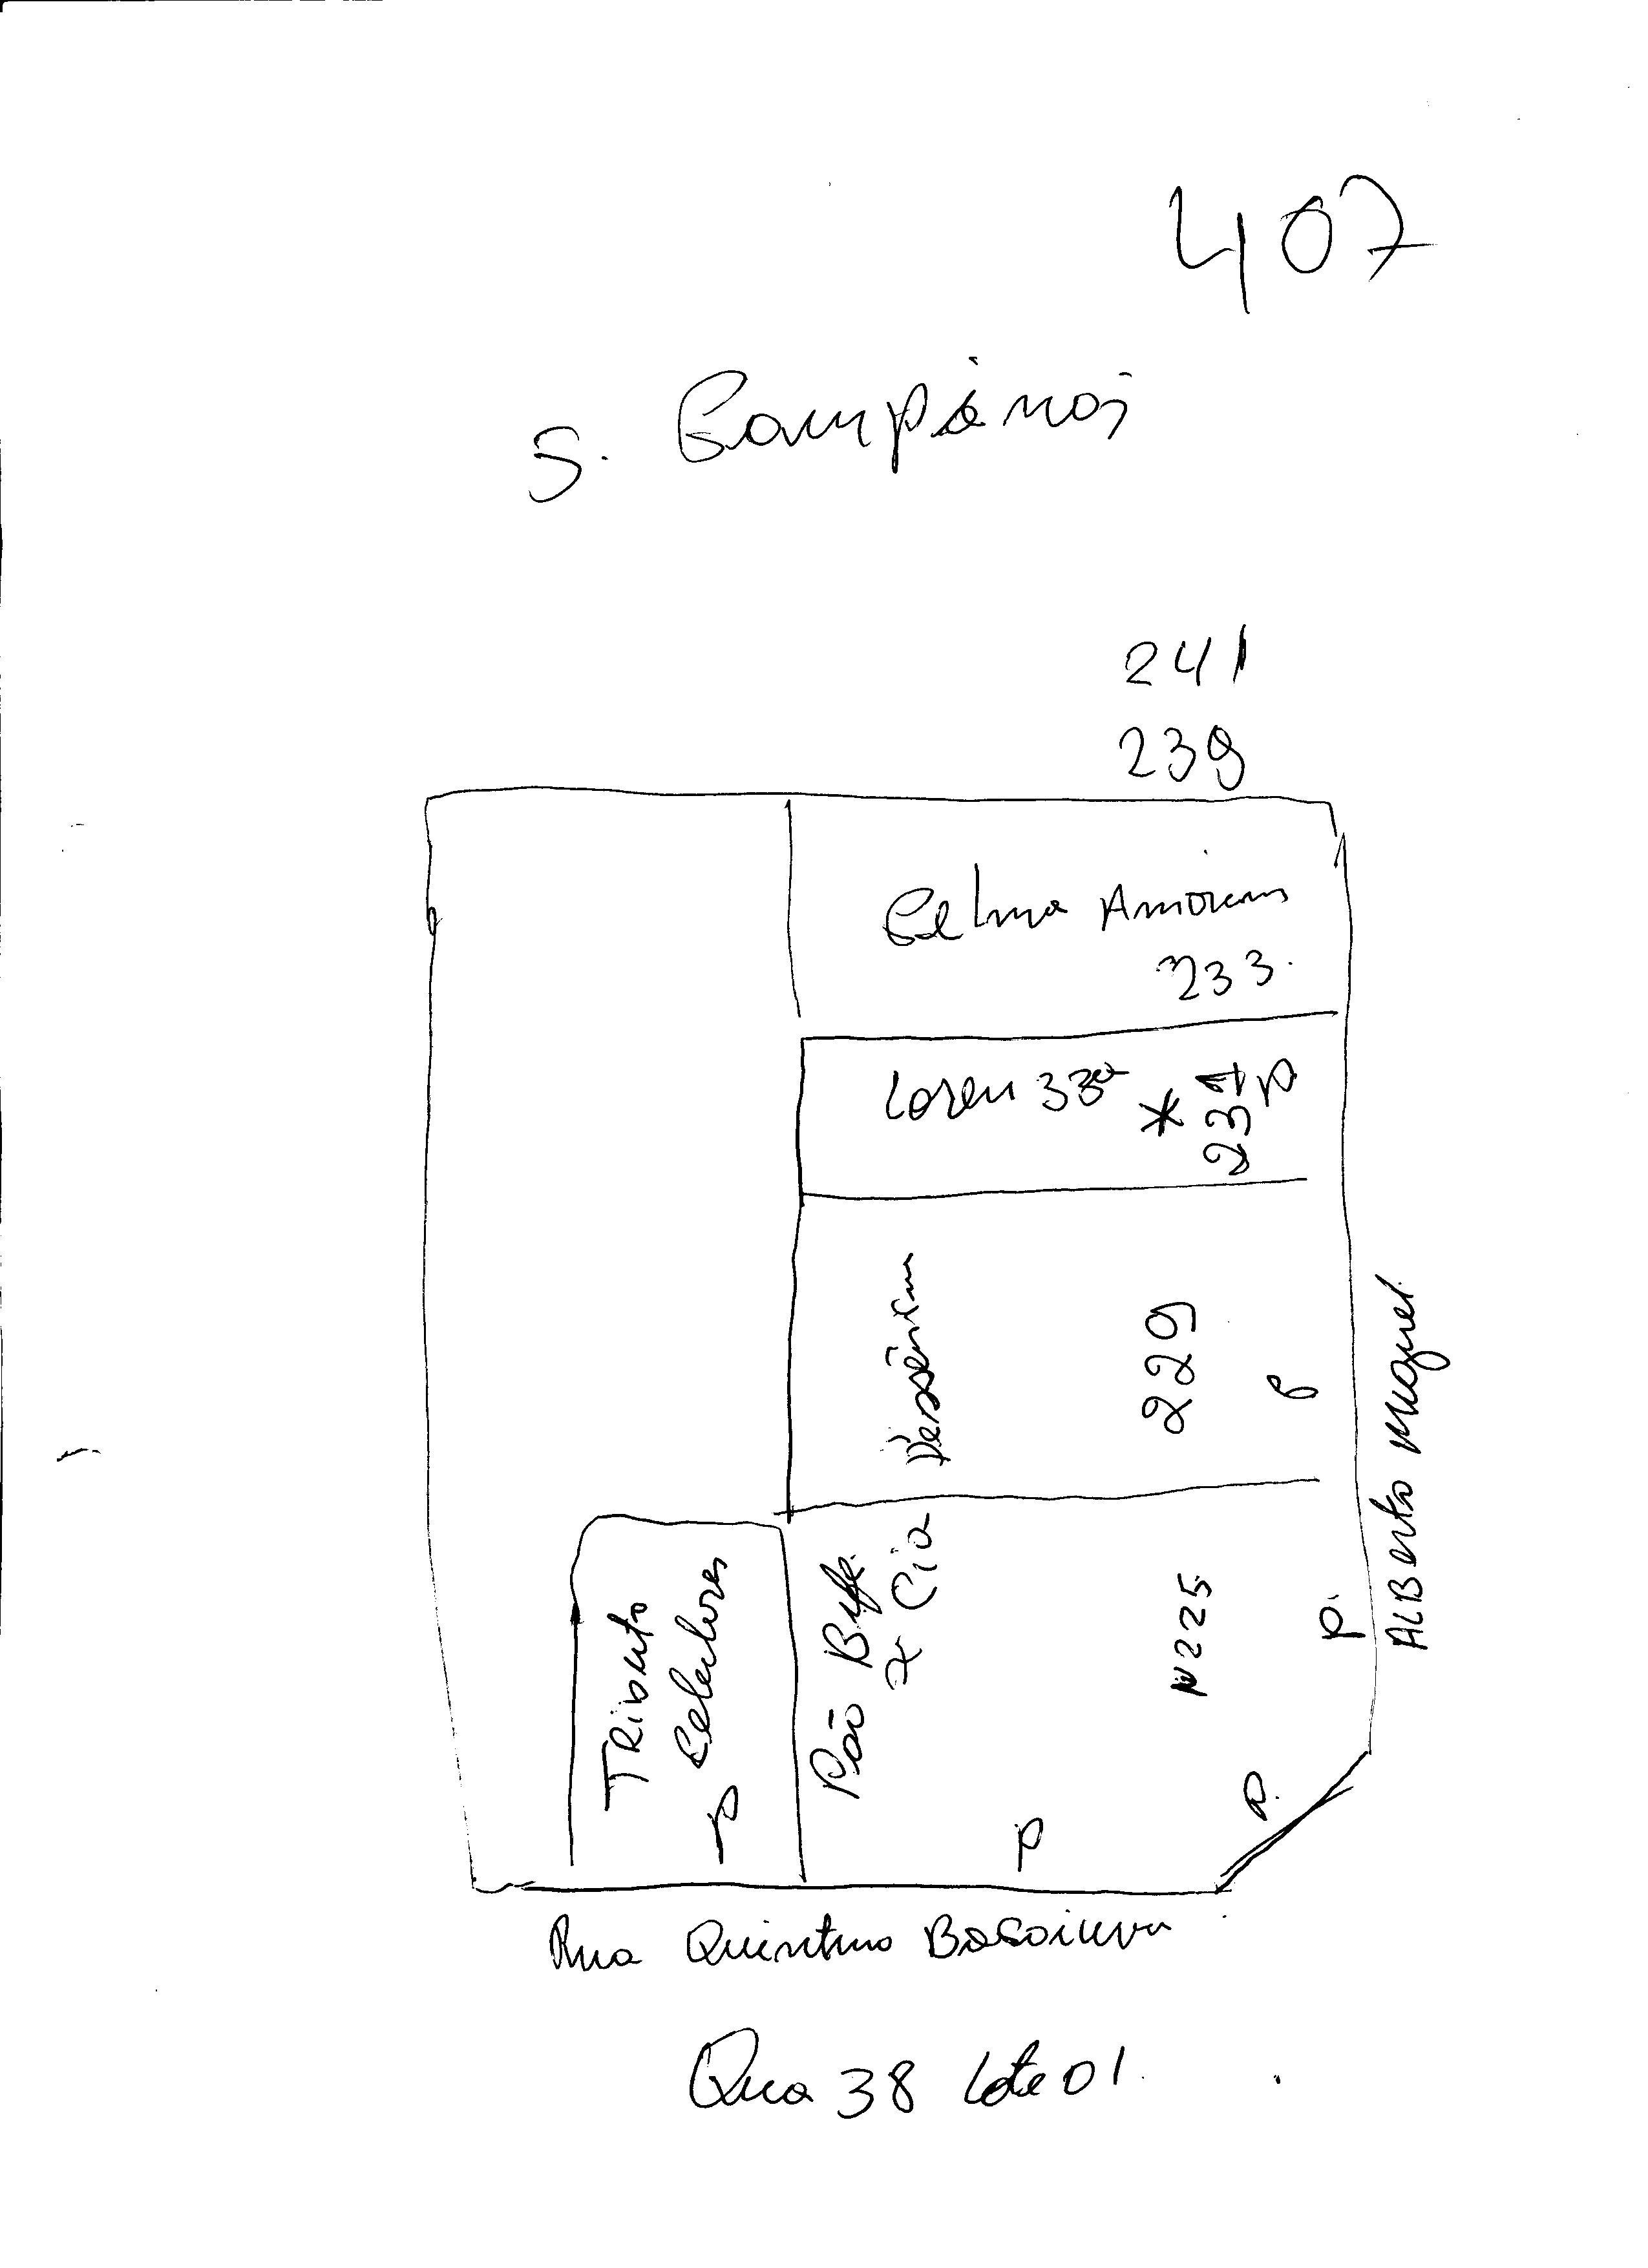 407
S. Campinas
241
239
Celma Amorim
233.
Loren 33
* 231
P
229
P
Tributo
Celulares
P
Pão Bife
& Cia
N 225
P.
P.
P
ALBERTO Miguel
Rua Quintino Bocaiuva
Qua 38 Lote 01